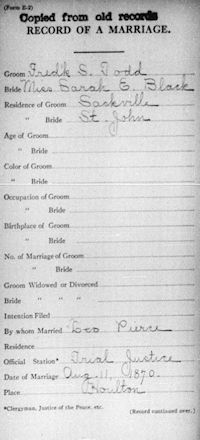 (Form E-2)
Copied from old records
RECORD OF A MARRIAGE.
Groom Fredk S. Todd
Bride Miss Sarah E. Black
Residence of Groom Sackville
" Bride St. John
Age of Groom
" Bride
Color of Groom
" Bride
Occupation of Groom
" Bride
Birthplace of Groom
" Bride
No. of Marriage of Groom
" Bride
Groom Widowed or Divorced
Bride " "
Intention Filed
By whom Married Geo Pierce
Residence
Official Station* Trial Justice
Date of Marriage Aug. 11, 1870.
Place Houlton
*Clergyman, Justice of the Peace, etc. (Record continued over.)